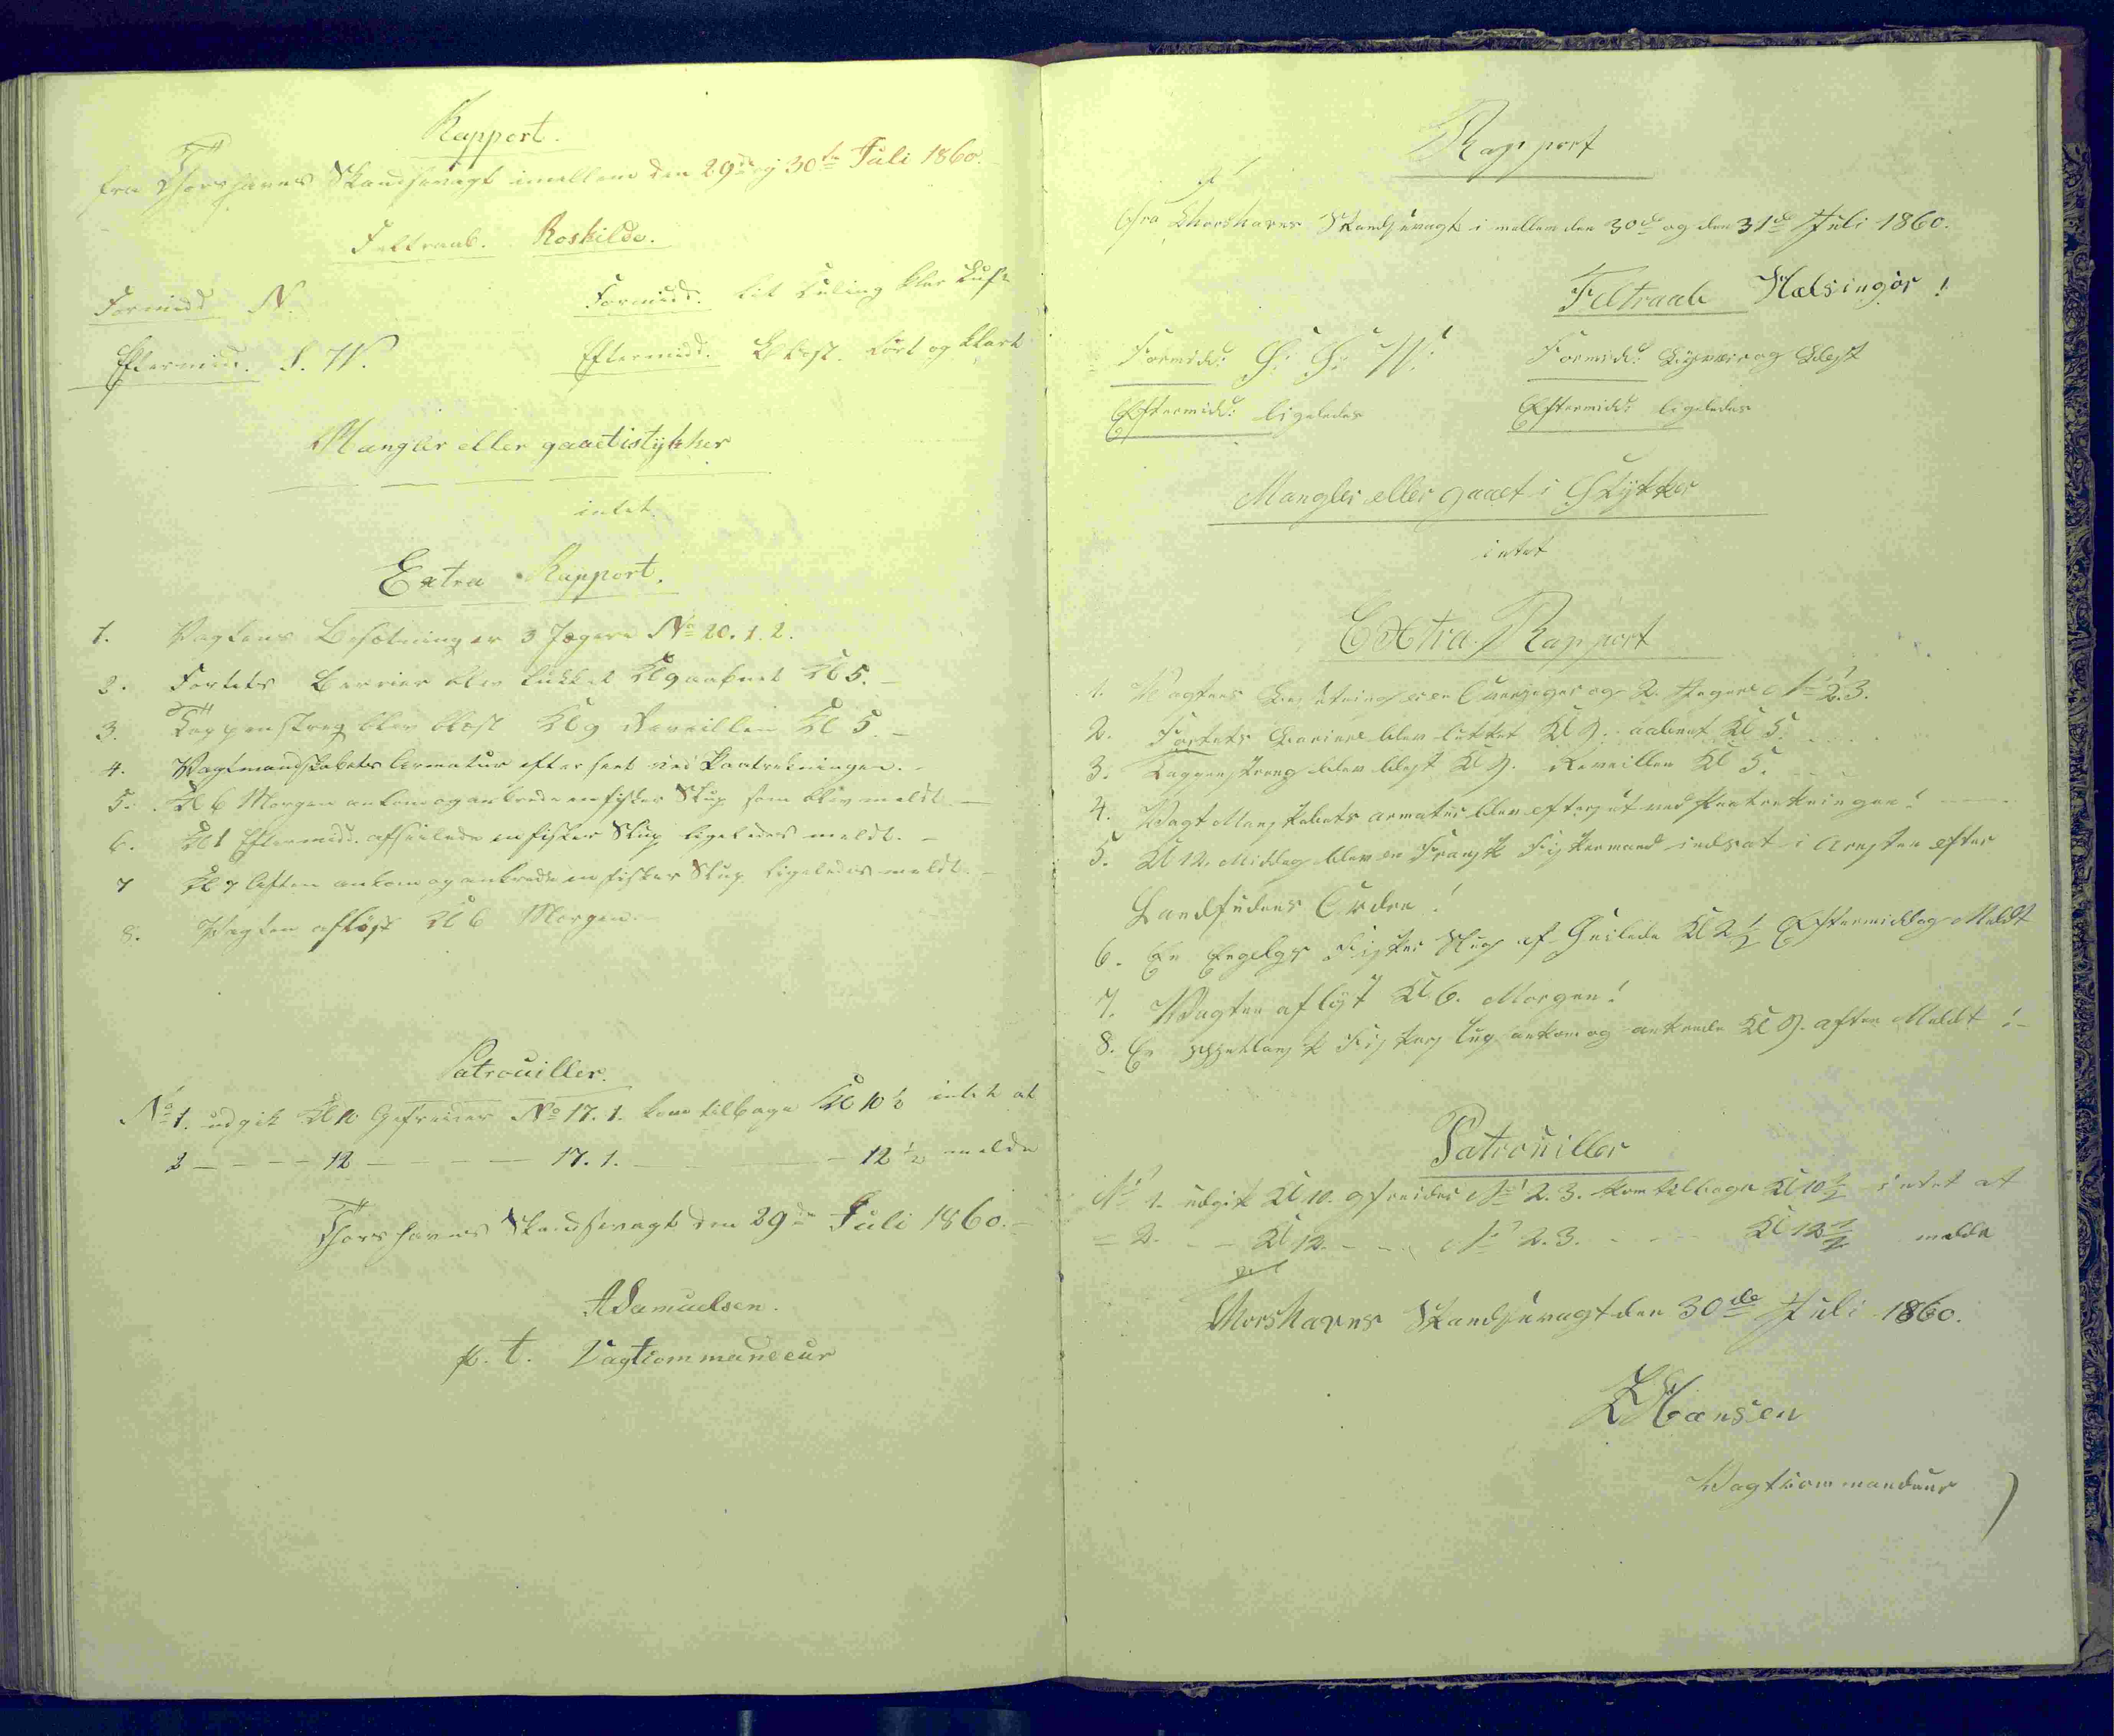 Rapport.
fra Thorshavns Skandsevagt imellem den 29de og 30te Juli 1860.
Feltraab. Roskilde.
Formidd N. Formidd. lit Kuling klar Luft
Eftermidd. S. W. Eftermidd. Blæst tørt og klart
Mangler eller gaaetistykker
intet
Extra Rapport.
1. Vagtens Besætning er 3 Jægere No 20. 1. 2.
2. Fortets Barrier blev lukket Kl 9 aabnet Kl 5.
3. Tappenstreg blev blæst Kl 9 Reveillen Kl 5.
4. Vagtmandskabets Armatur efterseet ved Paatrækningen.
5. Kl 6 Morgen ankom og ankrede en fisker Slup som blev meldt
6. Kl 1 Eftermidd. afseilede en fisker Slup ligeledes meldt.
7 Kl 7 Aften ankom og ankrede en fisker Slup ligeledes meldt.
8. Vagten afløst Kl 6 Morgen.
Patrouiller.
No 1. udgik Kl 10 Gefreider No 17. 1. kom tilbage Kl 10 ½ intet at
2 — — — 12 — — — — 17. 1. — — — 12 ½ melde
Thorshavns Skandsevagt den 29de Juli 1860.
ASamuelsen.
p. t. Vagtcommandeur
Rapport
Fra Thorshavns Skandsevagt i mellem den 30de og den 31de Juli 1860.
Feltraab Helsingør!
Formidd: S: S: W: Formidd: Tyvær og Blæst
Eftermidd: ligeledes Eftermidd: ligeledes
Mangler eller gaaet i Stykker
intet
Extra Rapport
1. Vagtens Besætning er en Overjæger og 2. Jægere No 2. 3.
2. Fortets Bariere blev lukket Kl 9. aabnet Kl 5.
3. Tappenstreng blev blæst Kl 9. Reveillen Kl 5.
4. Vagt Manskabets armatur blev efterset ved Paatrækningen!
5. Kl 12. Middag blev en Fransk Fiskermand indsat i Aresten efter
Landfudens Ordre!
6. En Engelgs Fisker Slup af Seilede Kl 2½ Eftermiddag Meldt
7. Vagten afløst Kl 6. Morgen!
8. En Schetlansk Fisker Slup ankom og ankrede Kl 9. aften Meldt!
Patrouiller
No 1. udgik Kl 10. gfreider No 2. 3. kom tilbage Kl 10½ intet at
= 2. - - Kl 12. - - No 2. 3. - - - Kl 12½ melde
Thorshavns Skandsevagt den 30de Juli 1860.
Hansen
Vagtcommandeur